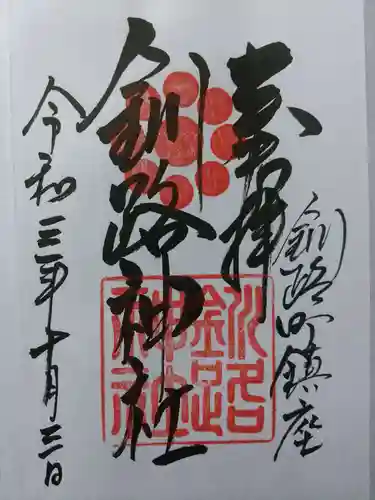 奉拝
釧路町鎮座
釧路神社
釧路神社
令和三年十月三日